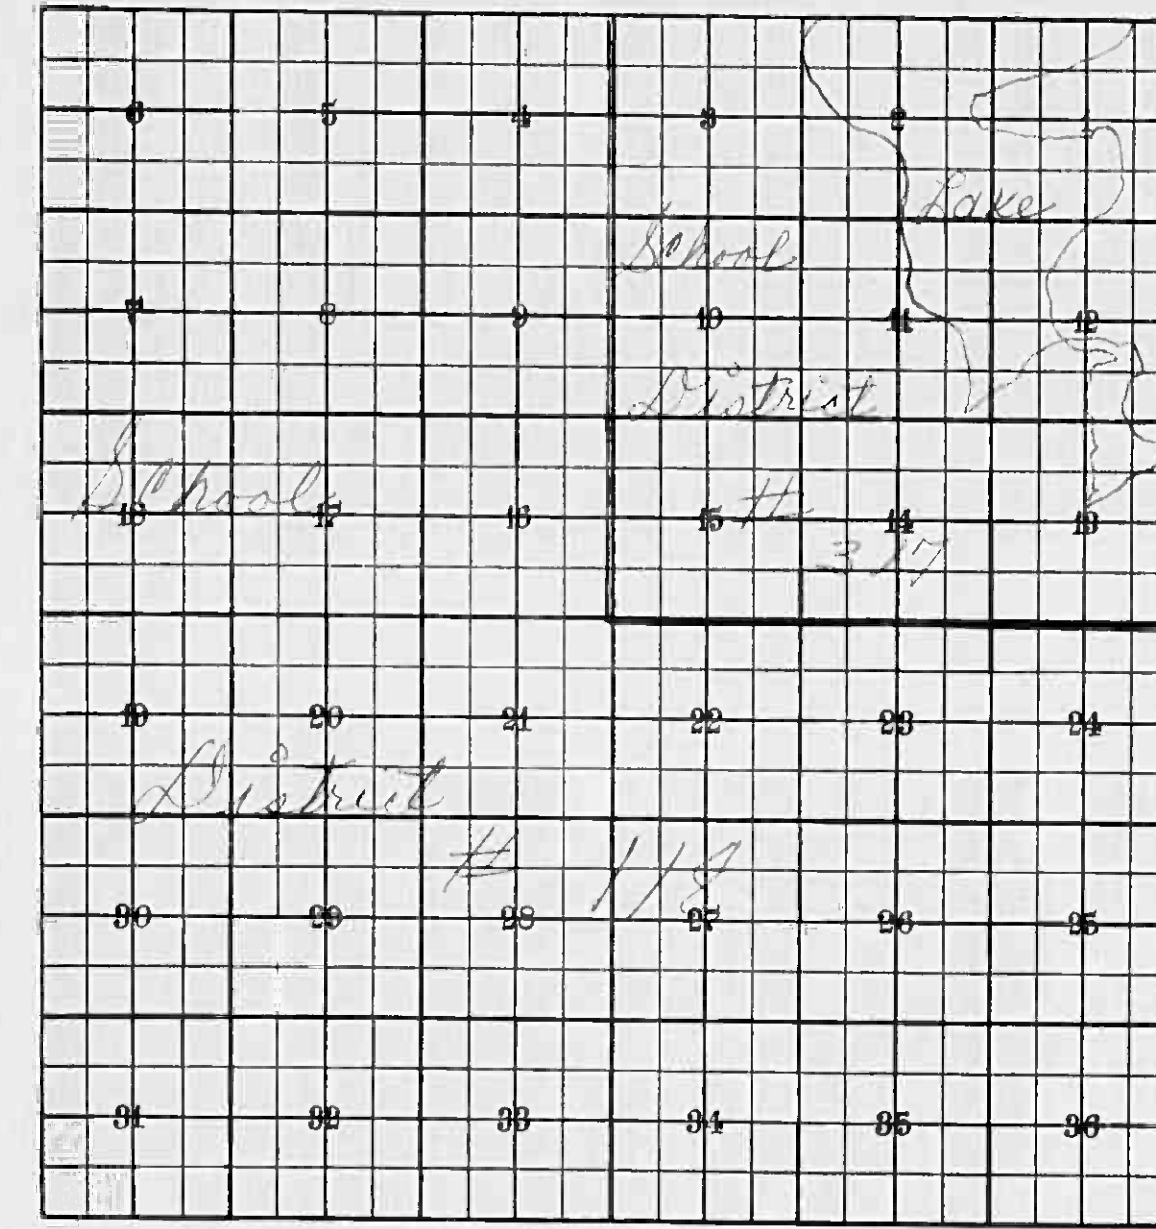 6 5 4 3 2
Lake
School
7 8 9 10 11 12
District
School
18 17 16 15 # 14 13
317
19 20 21 22 23 24
District
#
30 29 28 27 26 25
31 32 33 34 35 36